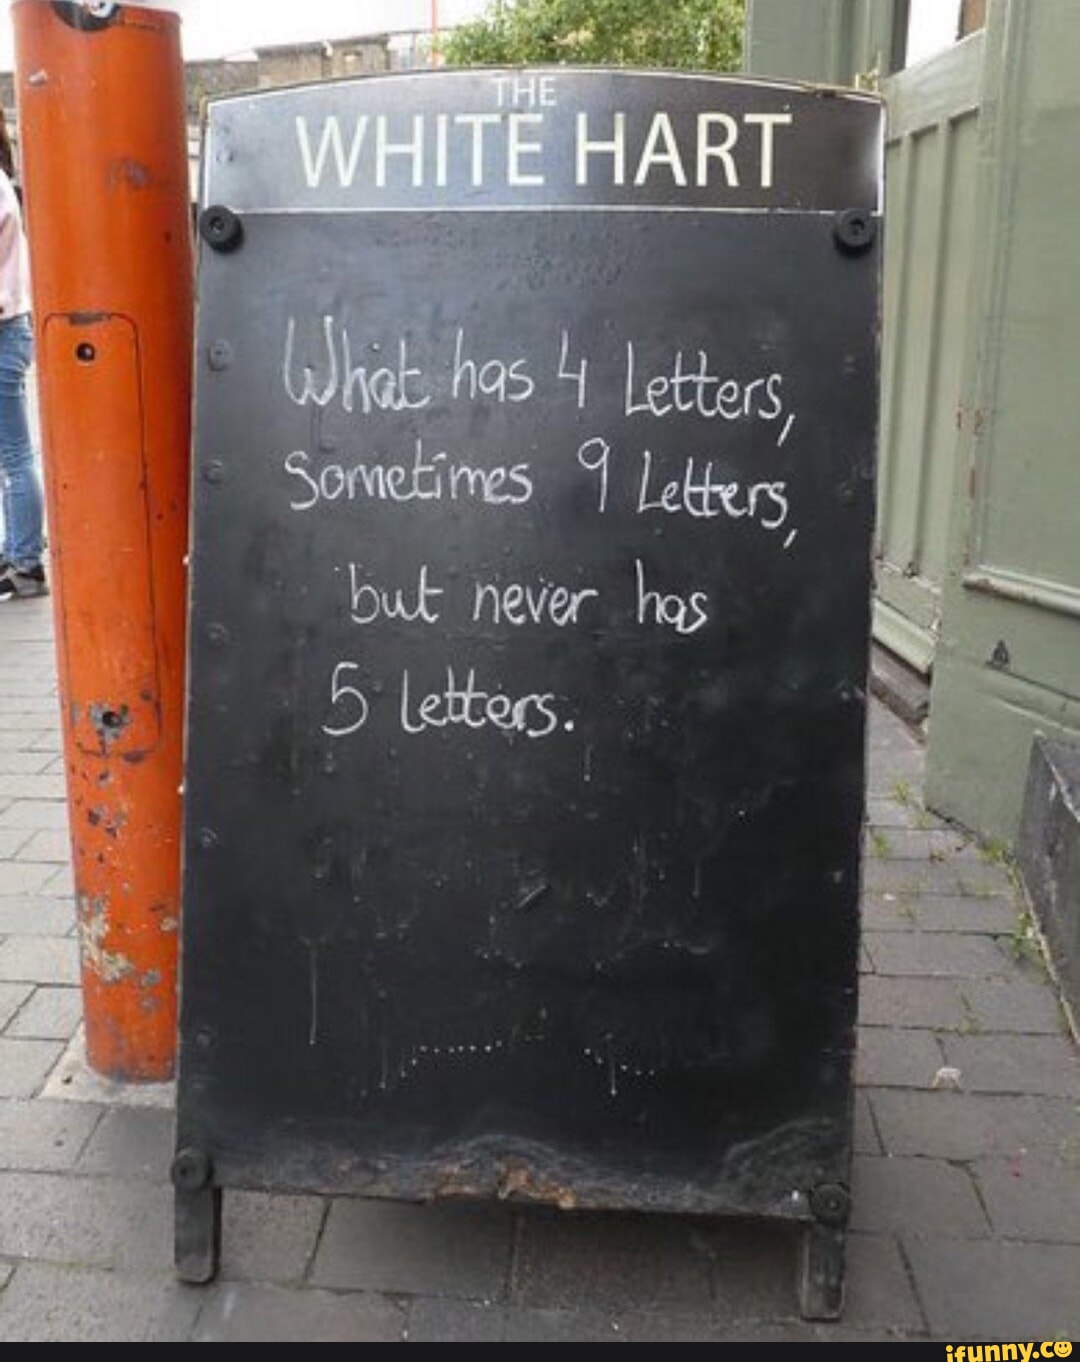 THE
WHITE HART
What has 4 Letters,
Sometimes 9 Letters,
but never has
5 letters.
ifunny.co